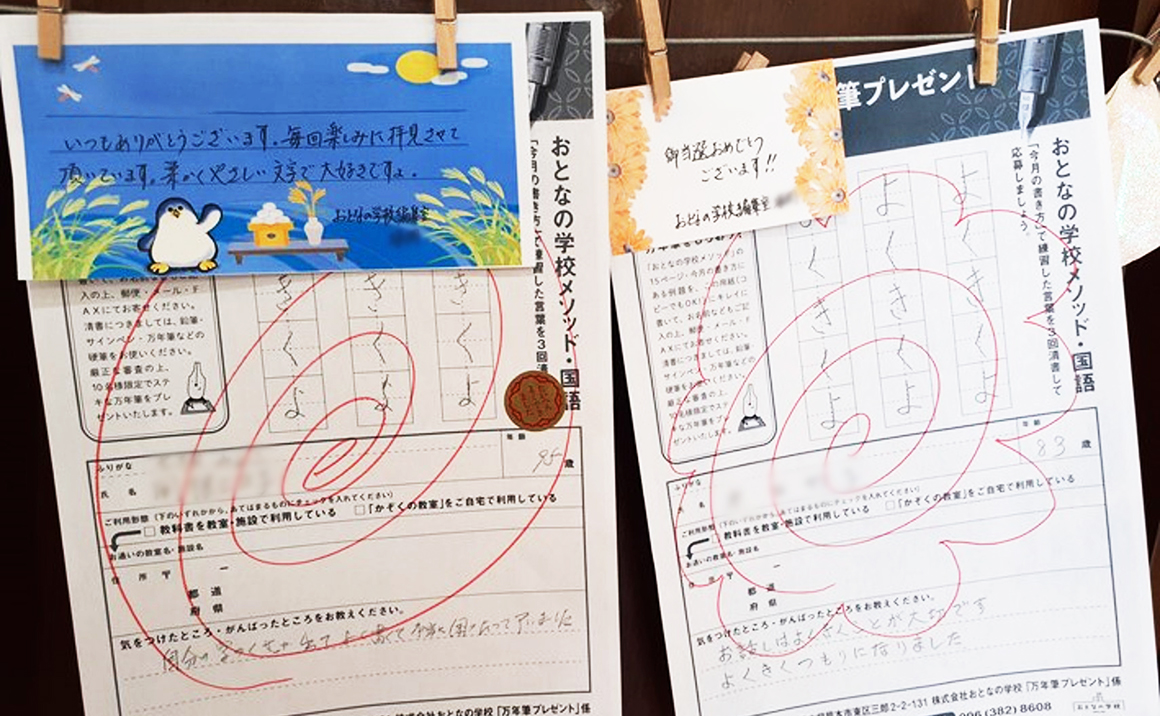 いつもありがとうございます。毎回楽しみに拝見させて
頂いています。柔かくやさしい文字で大好きですよ。
おとなの学校編集室
おとなの学校メソッド・国語
「今月の書き方」で練習した言葉を3回清
入の上、郵便・メール・F
AXにてお寄せください。
清書につきましては、鉛筆・
サインペン・万年筆などの
硬筆をお使いください。
厳正な審査の上、
10名様限定でステ
キな万年筆をプレ
ゼントいたします。
きくよ
きくよ
きくよ
ふりがな
氏 名
年 齢
95 歳
ご利用形態(下のいずれかから、あてはまるものにチェックを入れてください)
□教科書を教室・施設で利用している □「かぞくの教室」をご自宅で利用している
お通いの教室名・施設名
住 所 〒 －
都 道
府 県
気をつけたところ・がんばったところをお教えください。
「万年筆プレゼント」係
筆プレゼント
御当選おめでとう
ございます!!
おとなの学校編集室
おとなの学校メソッド・国語
「今月の書き方」で練習した言葉を3回清書して
応募しましょう。
よくきくよ
よくきくよ
くきくよ
「おとなの学校メソッド」の
15ページ・今月の書き方に
ある例題を、この用紙(コ
ピーでもOK!)にキレイに
書いて、お名前などもご記
入の上、郵便・メール・F
AXにてお寄せください。
清書につきましては、鉛筆・
サインペン・万年筆などの
硬筆をお使いください。
厳正な審査の上、
10名様限定でステ
キな万年筆をプレ
ゼントいたします。
ふりがな
氏 名
年 齢
83 歳
ご利用形態(下のいずれかから、あてはまるものにチェックを入れてください)
□教科書を教室・施設で利用している □「かぞくの教室」をご自宅で利用している
お通いの教室名・施設名
住 所 〒 －
都 道
府 県
気をつけたところ・がんばったところをお教えください。
お話しはよくきくことが大切です
よくきくつもりになりました
熊本市東区三郎2-2-131 株式会社おとなの学校「万年筆プレゼント」係
096(382)8608
おとなの学校